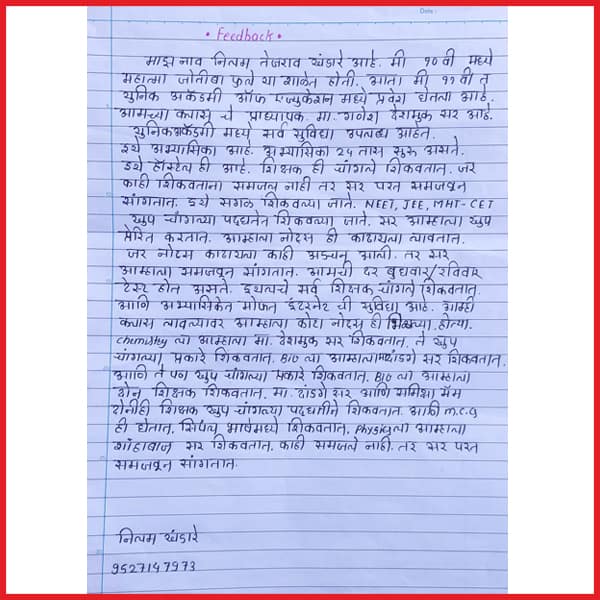 Date :
• Feedback •
माझ नाव निलम तेजराव खंडारे आहे. मी १० वी मध्ये
महात्मा जोतीबा फुले या शाळेत होती. आता मी ११ वी त
युनिक अकॅडमी ऑफ एज्युकेशन मध्ये प्रवेश घेतला आहे.
आमच्या क्लास चे प्राध्यापक मा. गणेश देशमुक सर आहे.
युनिक अकॅडमी मध्ये सर्व सुविधा उपलब्ध आहेत.
इथे अभ्यासिका आहे. अभ्यासिका २४ तास सुरु असते.
इथे हॉस्टेल ही आहे. शिक्षक ही चांगले शिकवतात. जर
काही शिकवताना समजल नाही तर सर परत समजवून
सांगतात. इथे सगळ शिकवल्या जाते. NEET, JEE, MHT-CET
खुप चांगल्या पद्धतीनेत शिकवल्या जाते. सर आम्हाला खुप
प्रेरित करतात. आम्हाला नोटस ही काढायला लावतात.
जर नोटस काढायला काही अडचन आली. तर सर
आम्हाला समजवून सांगतात. आमची दर बुधवार/रविवार
टेस्ट होत असते. इथलचे सर्व शिक्षक चांगले शिकवतात.
आणि अभ्यासिकेत मोफत इंटरनेट ची सुविधा आहे. आम्ही
क्लास लावल्यावर आम्हाला कोटा नोटस ही मिळाल्या होत्या.
chemistry ला आम्हाला मा. देशमुक सर शिकवतात. ते खुप
चांगल्या प्रकारे शिकवतात. Bio ला आम्हाला दांडगे सर शिकवतात.
आणि ते पण खुप चांगल्या प्रकारे शिकवतात. Bio ला आम्हाला
दोन शिक्षक शिकवतात. मा. दांडगे सर आणि समिक्षा मॅम
दोनीही शिक्षक खुप चांगल्या पद्धतीने शिकवतात. आणि m.c.q
ही घेतात. सिंपल भाषेमध्ये शिकवतात. Physics ला आम्हाला
सर शिकवतात. काही समजले नाही. तर सर परत
समजवून सांगतात.
निलम खंडारे
9527147973